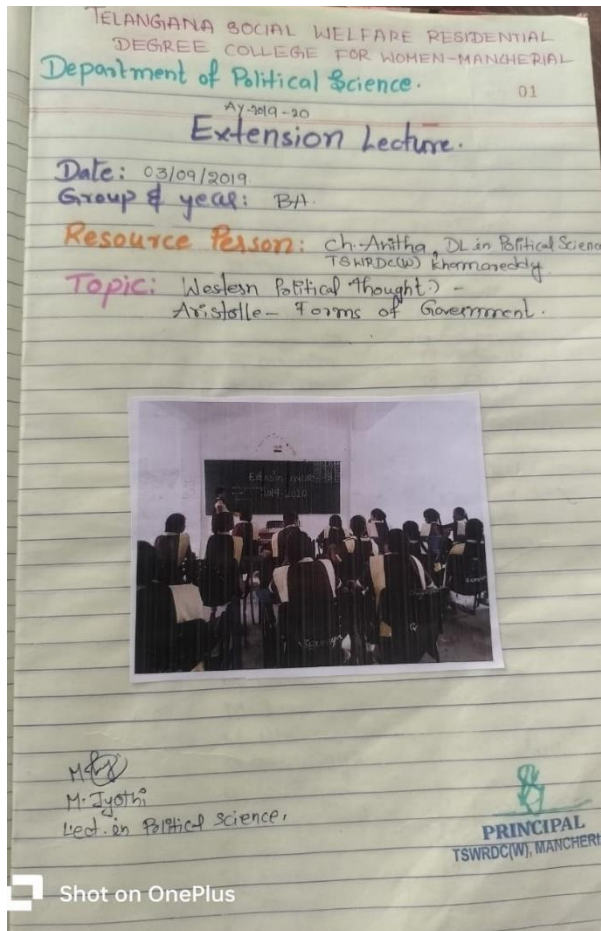 TELANGANA SOCIAL WELFARE RESIDENTIAL
DEGREE COLLEGE FOR WOMEN-MANCHERIAL
Department of Political Science.
01
AY-2019-20
Extension Lecture.
Date: 03/09/2019
Group & year: BA.
Resource Person: Ch. Anitha, DL in Political Science
TSWRDC(W) Khamareddy
Topic: Western Political Thought:) -
Aristotle- Forms of Government.
2019-2020
M. Jyothi
Lect. in Political Science,
PRINCIPAL
TSWRDC(W), MANCHERI
Shot on OnePlus